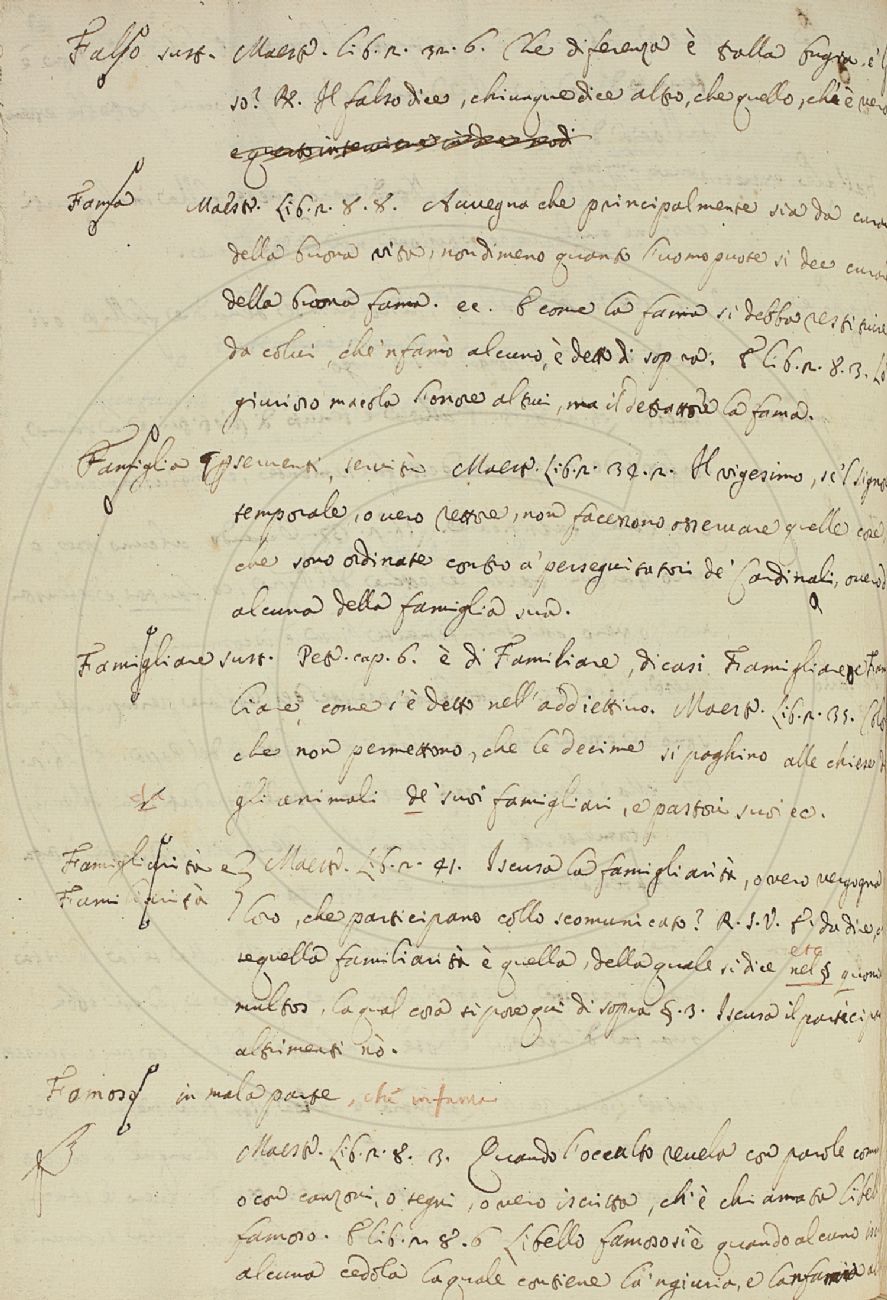 Falso sust. Maest. lib. 2. 32. 6. Che diferenza è tralla bugia, e'l
so? R. Il falso dice, chiunque dice altro, che quello, ch'è vero
Fama Maest. Lib. 2. 8. 8. Avvegna che principalmente sia da curar
della buona vita, nondimeno quanto l'uomo puote si dee curar
della buona fama. ec. E come la fama si debba restituire
da colui, che 'nfamò alcuno, è detto di sopra. E lib. 2. 8. 3. Lo
giurioso macola l'onore altrui, ma il detrattore la fama.
Famiglia serventi, servitù Maest. Lib. 2. 34. 2. Il vigesimo, se 'l signor
temporale, o vero rettore, non facessono osservare quelle cose,
che sono ordinate contro a' perseguitatori de' Cardinali, overo d
alcuna della famiglia sua.
Famigliare sust. Petr. cap. 6. è di Familiare, dicasi Famigliare e Fami
liare, come s'è detto nell'addiettivo. Maest. Lib. 2. 35. Colo
che non permettono, che le decime si paghino alle chiese d
gli animali de' suoi famigliari, e pastori suoi ec.
Famigliarità e Maest. Lib. 2. 41. Iscusa la famigliarità, o vero vergogna
Familiarità loro, che participano collo scomunicato? R. S. V. E' da dire, c
se quella familiarità è quella, della quale si dice nel § quoni
multos, la qual cosa si pone qui di sopra §. 3. Iscusa il particip
altrimenti nò.
Famoso in mala parte, che infama
Maest. Lib. 2. 8. 3. Quando l'occulto revela con parole com
o con canzoni, o segni, o vero iscritta, ch'è chiamata libell
famoso. E lib. 2. 8. 6 Libello famoso si è quando alcuno in
alcuna cedola la quale contiene la 'ngiuria, e la 'nfamia